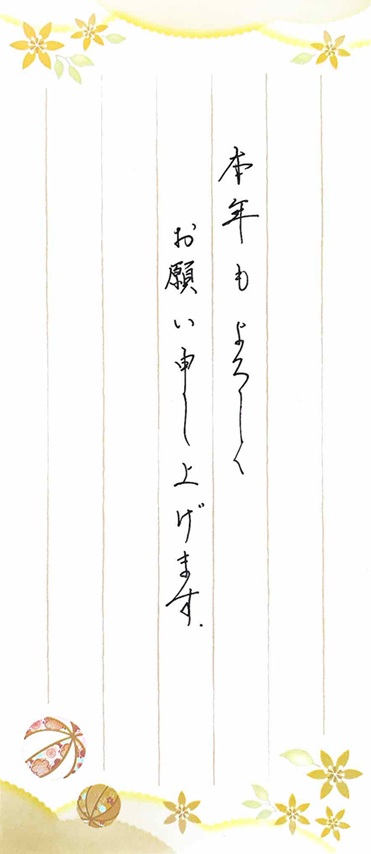 本年もよろしく
お願い申し上げます.